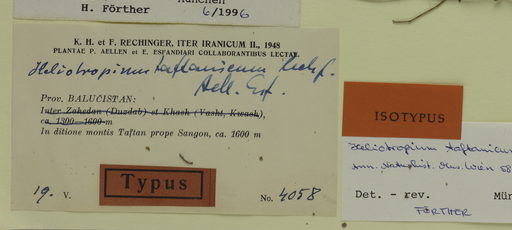 München
H. Förther 6/1996
K. H. et F. RECHINGER, ITER IRANICUM II., 1948
PLANTAE P. AELLEN et E. ESFANDIARI COLLABORANTIBUS LECTAE.
Heliotropium taftanicum Rech. f.
Aell. Esf.
Prov. BALUČISTAN:
Inter Zahedan (Duzdab) et Khash (Vasht, Kwash),
ca. 1300—1600 m
In ditione montis Taftan prope Sangon, ca. 1600 m
Typus
19. V. No. 4058
ISOTYPUS
Heliotropium taftanicum
Ann. Naturhist. Mus. Wien 58
Det. - rev. Mün
FÖRTHER